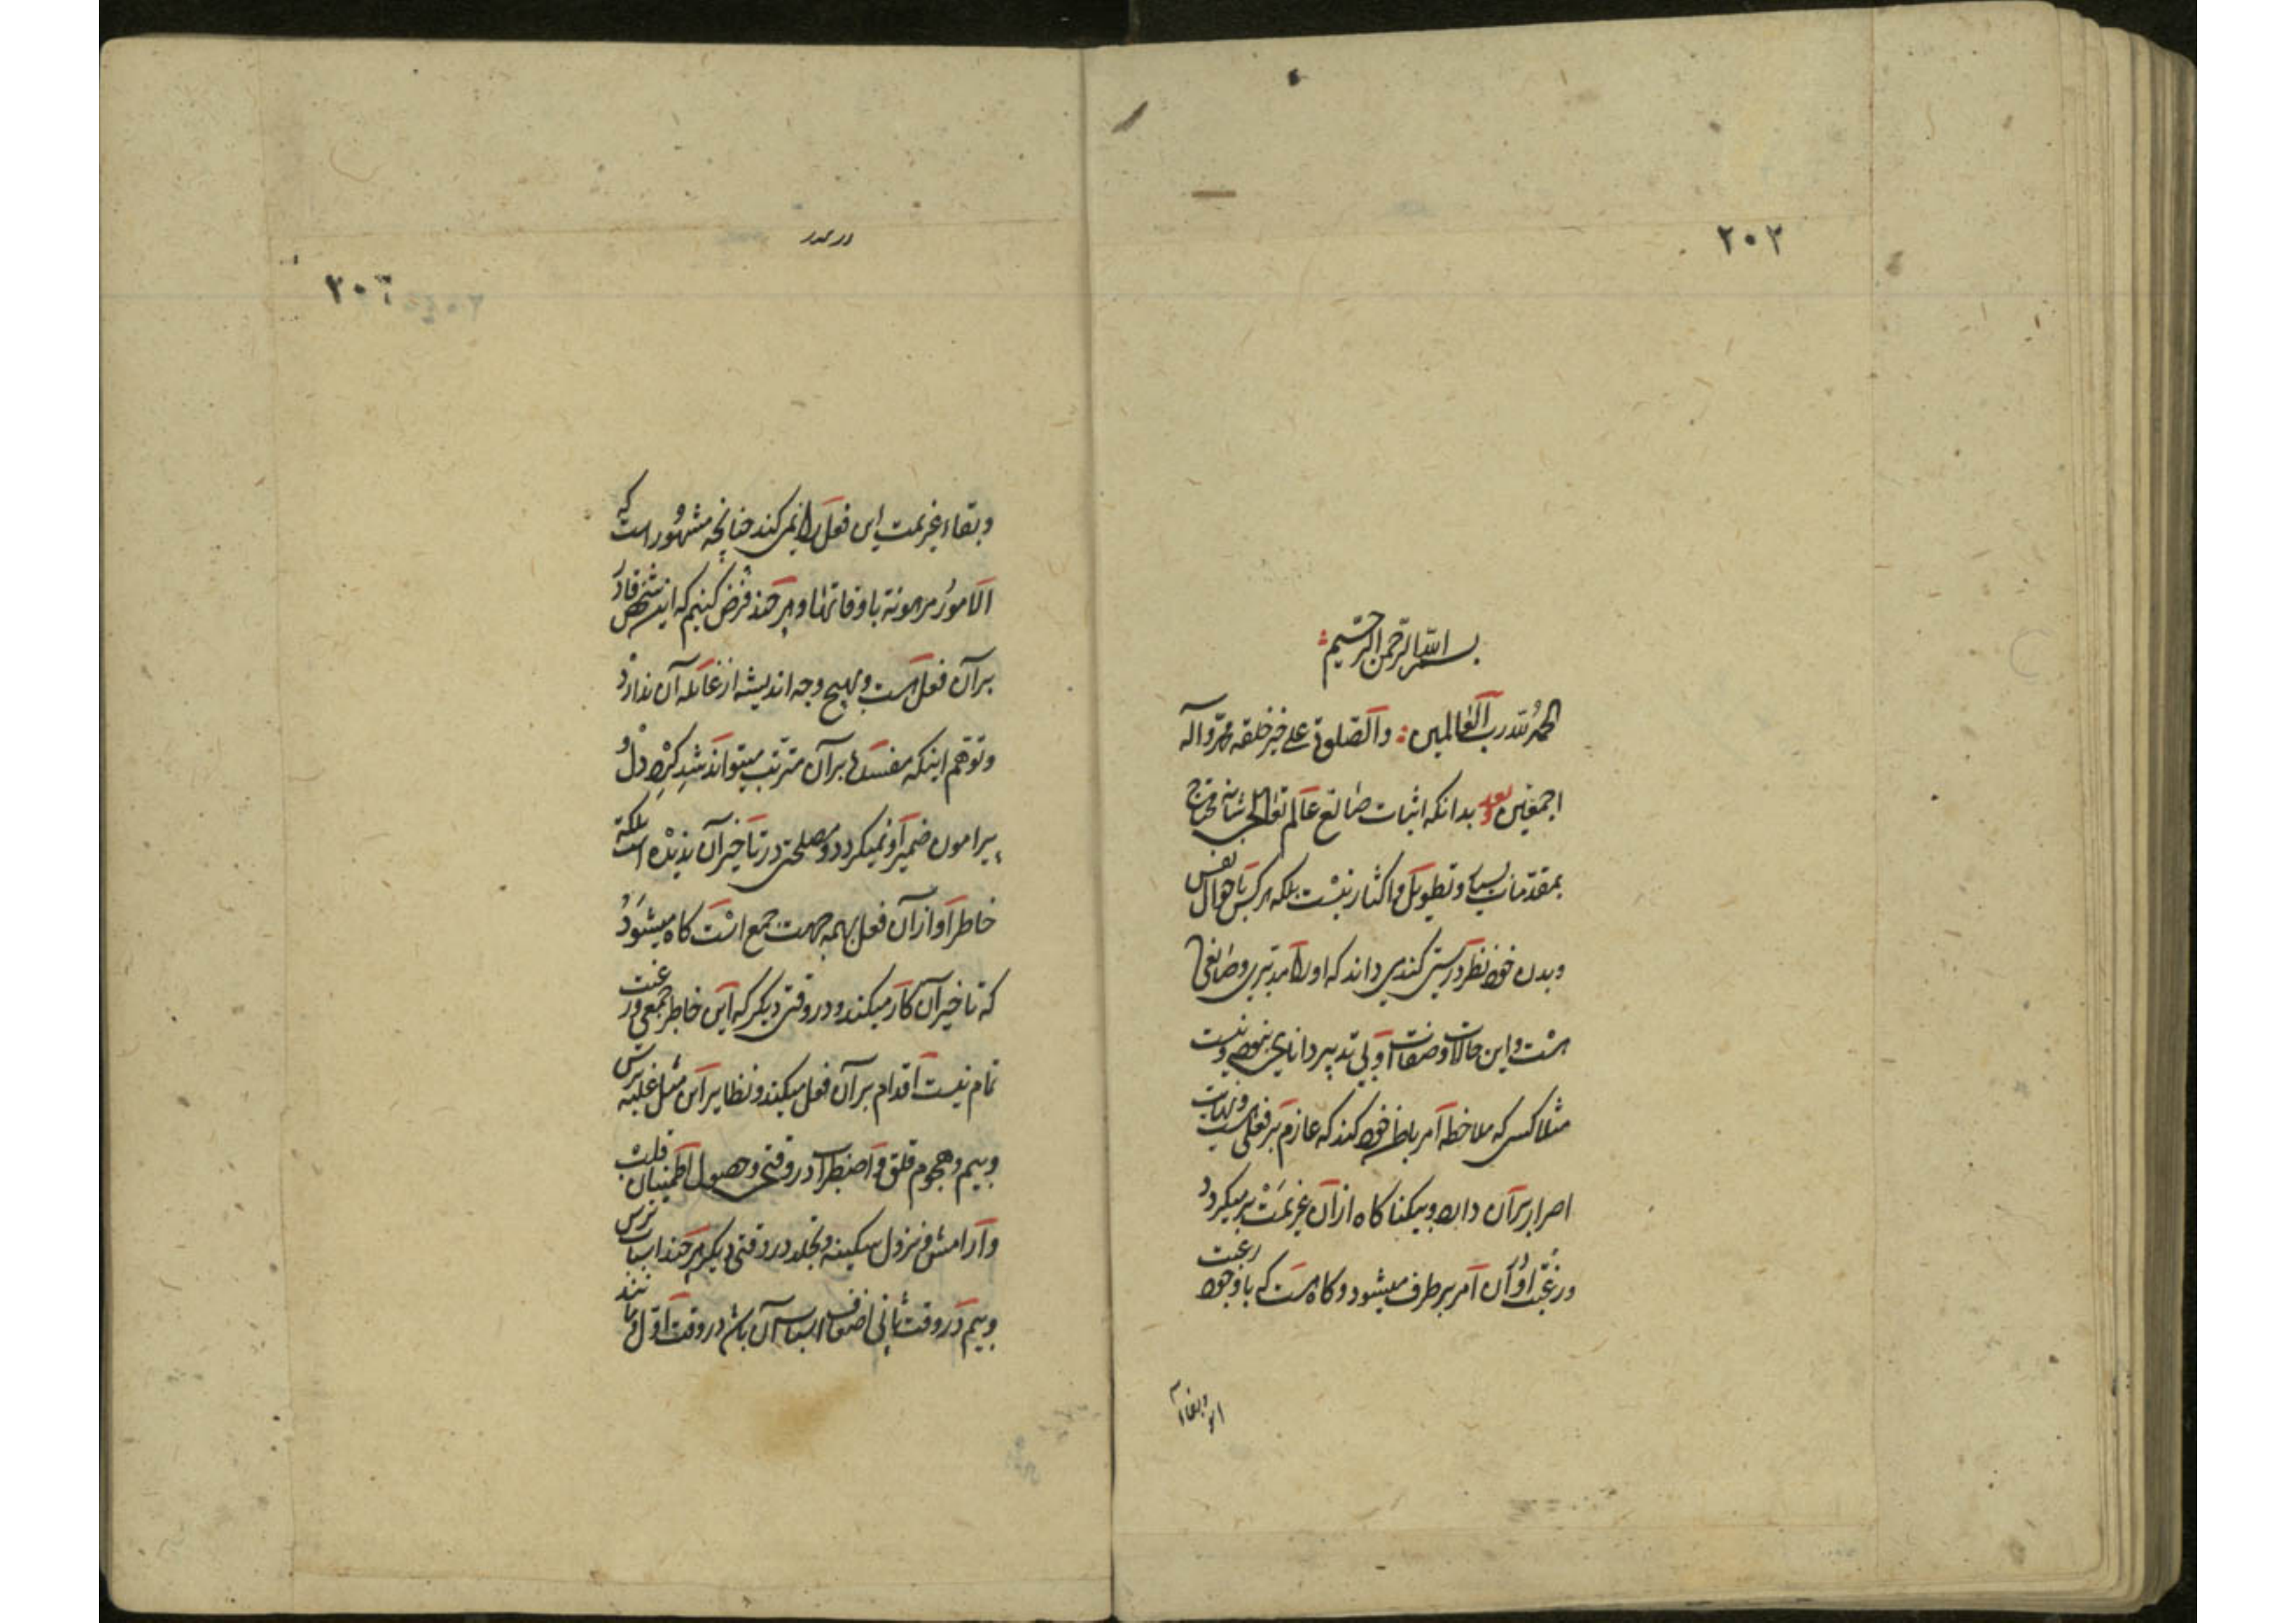 ۲۰۲
بسم الله الرحمن الرحیم
الحمد لله رب العالمین والصلوة علی خیر خلقه محمد وآله
اجمعین وبعد بدانکه اثبات صانع عالم تعالی شانه محتاج
بمقدمات بسیار و تطویل و اکثار نیست بلکه هر کس باحوال نفس
و بدن خود نظر درستی کند می داند که او را مدبری و صانعی
هست و این حالات و صفات او بی تدبیر دانایی نبوده و نیست
مثلا کسی که ملاحظه امر باطن خود کند که عازم بر فعلی است و نهایت
اصرار بر آن دارد و بیکناکاه از آن عزیمت بر میکردد
و رغبت او از آن امر بر طرف میشود و کاه هست که با وجود رغبت
و بقاء
در صدر
و بقاء عزیمت این فعل را نمی کند چنانچه مشهور است که
الامور مرهونة باوقاتها و هر چند فرض کنیم که این شخص قادر
بر آن فعل است و بهیچ وجه اندیشه از غائله آن ندارد
و توهم اینکه مفسده بر آن مترتب میتواند شد کرد دل و
پیرامون ضمیر او نمیکردد و مصلحتی در تاخیر آن ندیده است بلکه
خاطر او از آن فعل بهمه جهت جمع است کاه میشود
که تاخیر آن کار میکند و در وقتی دیکر که این خاطر جمعی و رغبت
تمام نیست اقدام بر آن فعل میکند و نظایر این مثل غلبه ترس
و بیم و هجوم قلق و اضطراب در وقتی و حصول اطمینان قلب
و آرامش و نزول سکینه و تجلد در وقتی دیکر هر چند اسباب ترس
و بیم در وقت ثانی اضعاف اسباب آن باشد در وقت اول مانند